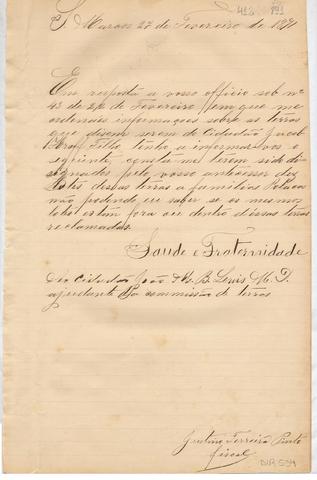 S. Marcos 27 de Fevereiro de 1891
Em resposta a vosso officio sob nº
43 de 26 de Fevereiro em que me
ordenais informações sobre as terras
que dizem serem do Cidadão Jacob
Filho, tenho a informar-vos o
seguinte, consta me terem sido di-
signados pelo vosso antecessor dez
lotes dessas terras a familias Polacas
não podendo eu saber se os mesmos
lotes estam fora ou dentro dessas terras
reclamadas.
Saude e Fraternidade
Ao Cidadão João B. Lewis M. D.
ajudante da commissão de terras
Ferreira Porto
fiscal